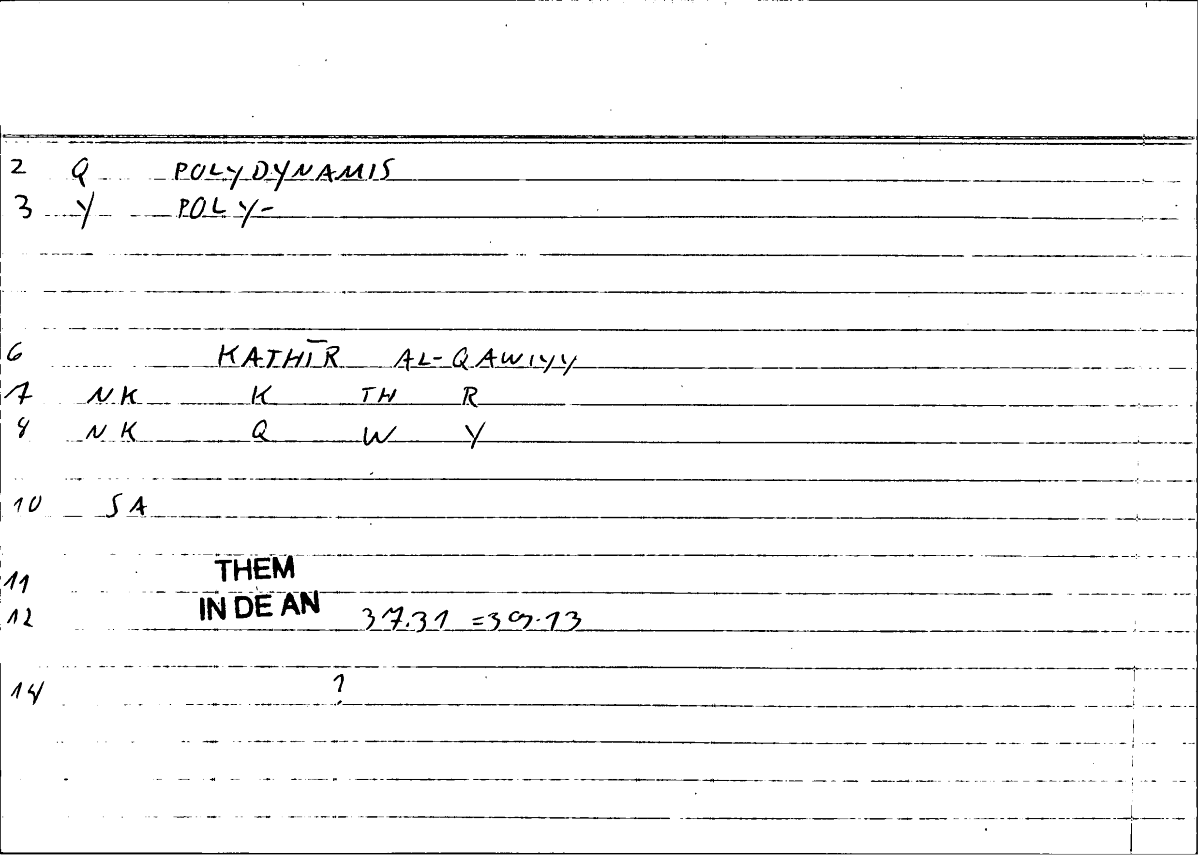 2 Q POLYDYNAMIS
3 Y POLY-
6 KATHĪR AL-QAWIYY
7 NK K TH R
8 NK Q W Y
10 SA
11 THEM
12 IN DE AN 37.31 =39.13
14 ?